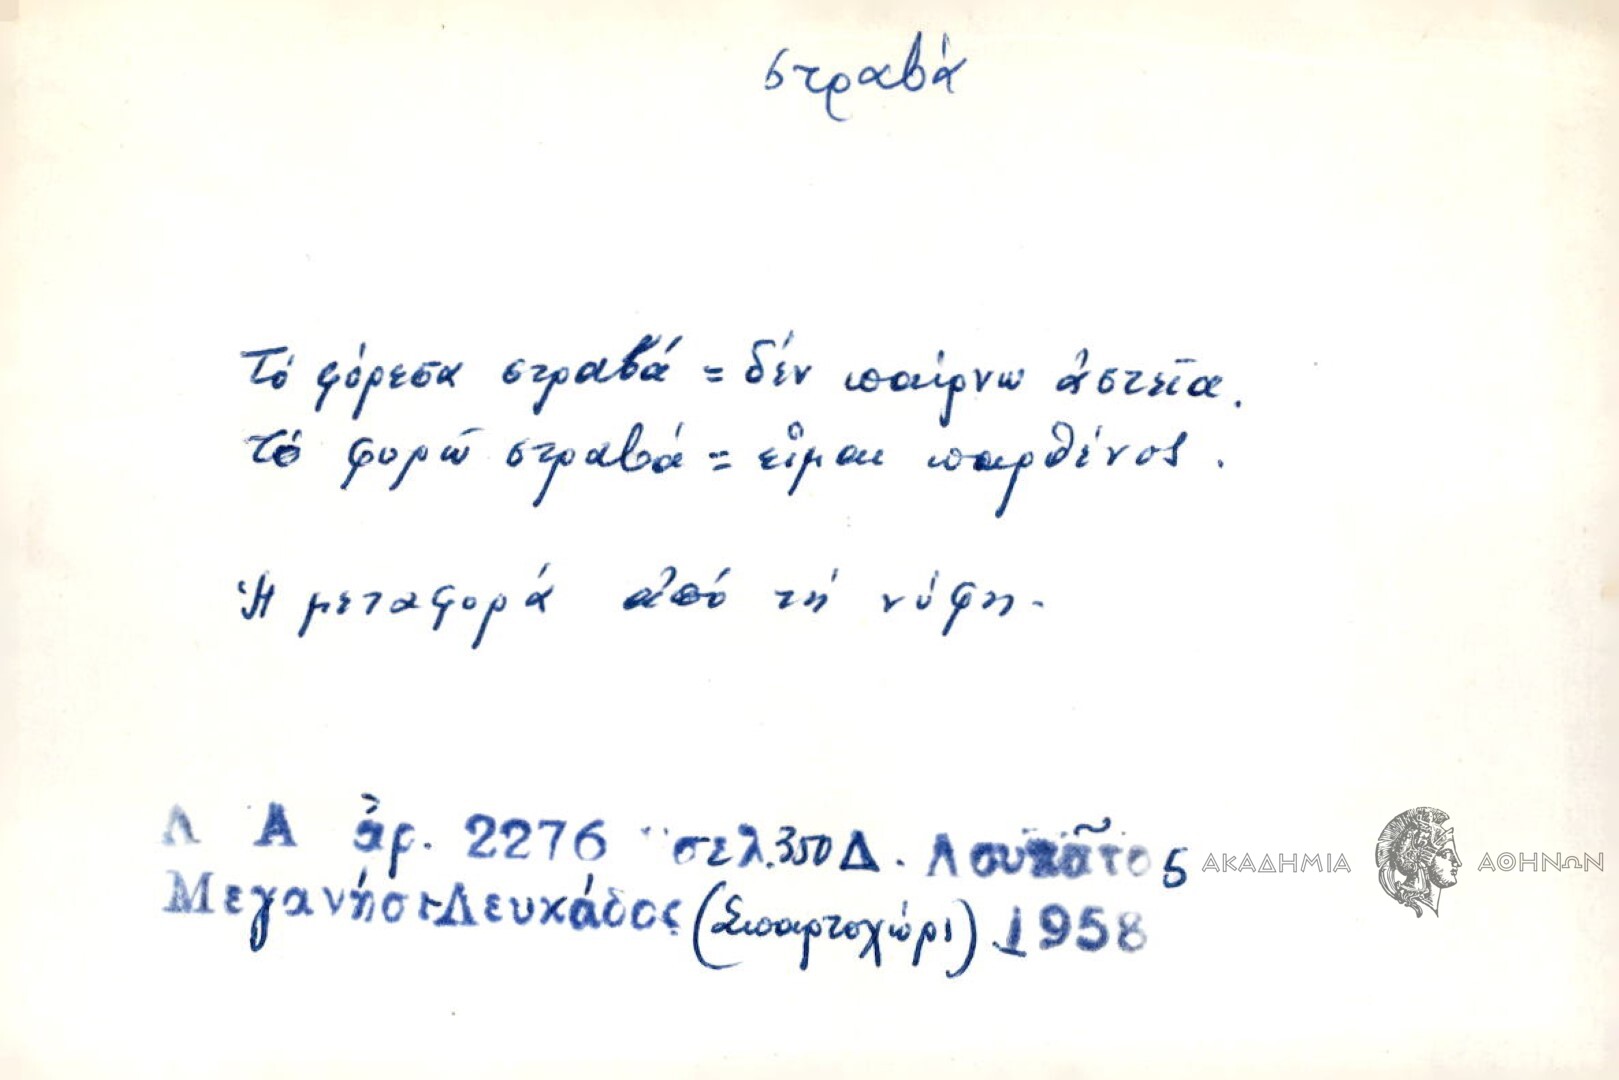 στραβά
Τό φόρεσα στραβά = δέν παίρνω ἀστεῖα.
Τό φορῶ στραβά = εἶμαι παρθένος.
Ἡ μεταφορά ἀπό τή νύφη.
Λ Α ἀρ. 2276 σελ.350 Δ. Λουκᾶτος
Μεγανήσι Λευκάδος (Σπαρτοχώρι) 1958
ΑΚΑΔΗΜΙΑ ΑΘΗΝΩΝ